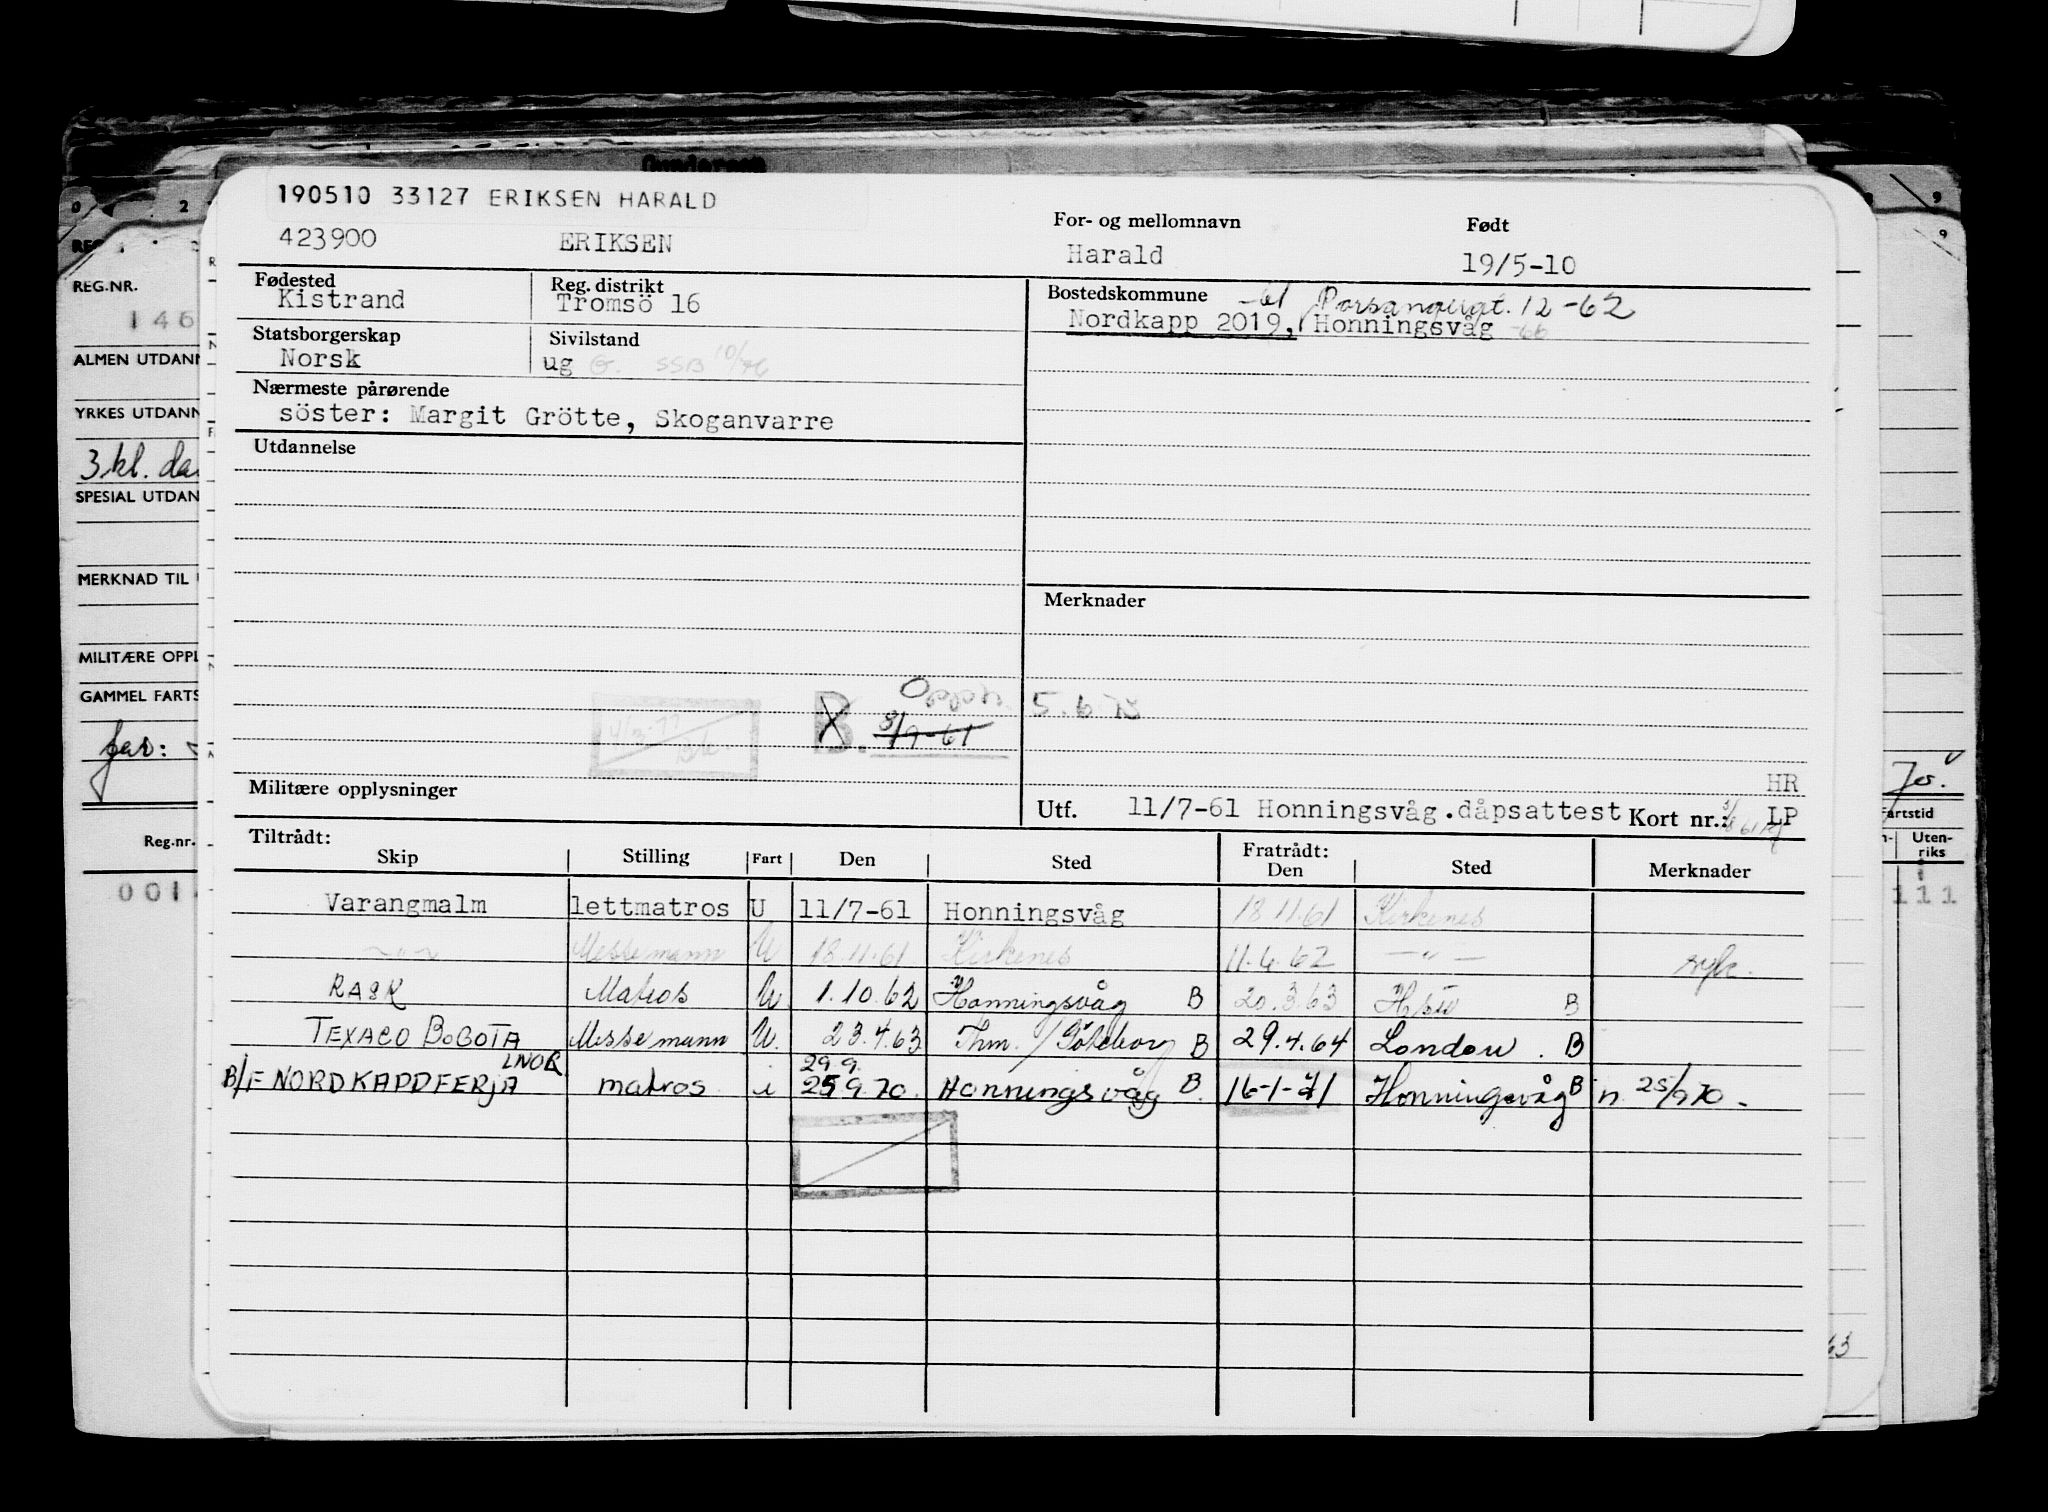 190510 33127 ERIKSEN HARALD
423900 ERIKSEN
For- og mellomnavn
Harald
Født
19/5-10
Fødested
Kistrand
Reg. distrikt
Tromsö 16
Bostedskommune
-61 12-62
Nordkapp 2019, Honningsvåg -66
Statsborgerskap
Norsk
Sivilstand
ug G. SSB 10/76
Nærmeste pårørende
söster: Margit Grötte, Skoganvarre
Utdannelse
Merknader
B. 3/9-61
Militære opplysninger
HR
Utf. 11/7-61 Honningsvåg.dåpsattest Kort nr.: LP
Tiltrådt:
Skip Stilling Fart Den Sted
Fratrådt:
Den Sted Merknader
Varangmalm lettmatros U 11/7-61 Honningsvåg 18.11.61 Kirkenes
-"- Messemann U 18.11.61 Kirkenes 11.4.62 -"- syk.
RASK Matros U. 1.10.62 Honningsvåg B 20.3.63 B
TEXACO BOGOTA Messemann U. 23.4.63 Thm. / Göteborg B 29.4.64 London. B
LNOR 29.9.
B/F NORDKAPPFERJA matros i 25 9.70. Honningsvåg B. 16-1-71 Honningsvåg B n. 25/9 70-
0 2
REG.NR.
146
ALMEN UTDANN
YRKES UTDANN
3 kl. da
SPESIAL UTDAN
MERKNAD TIL
MILITÆRE OPPL
GAMMEL FARTS
far:
Reg.nr.
001
9
9
Jo.
artstid
Uten-
riks
111
63